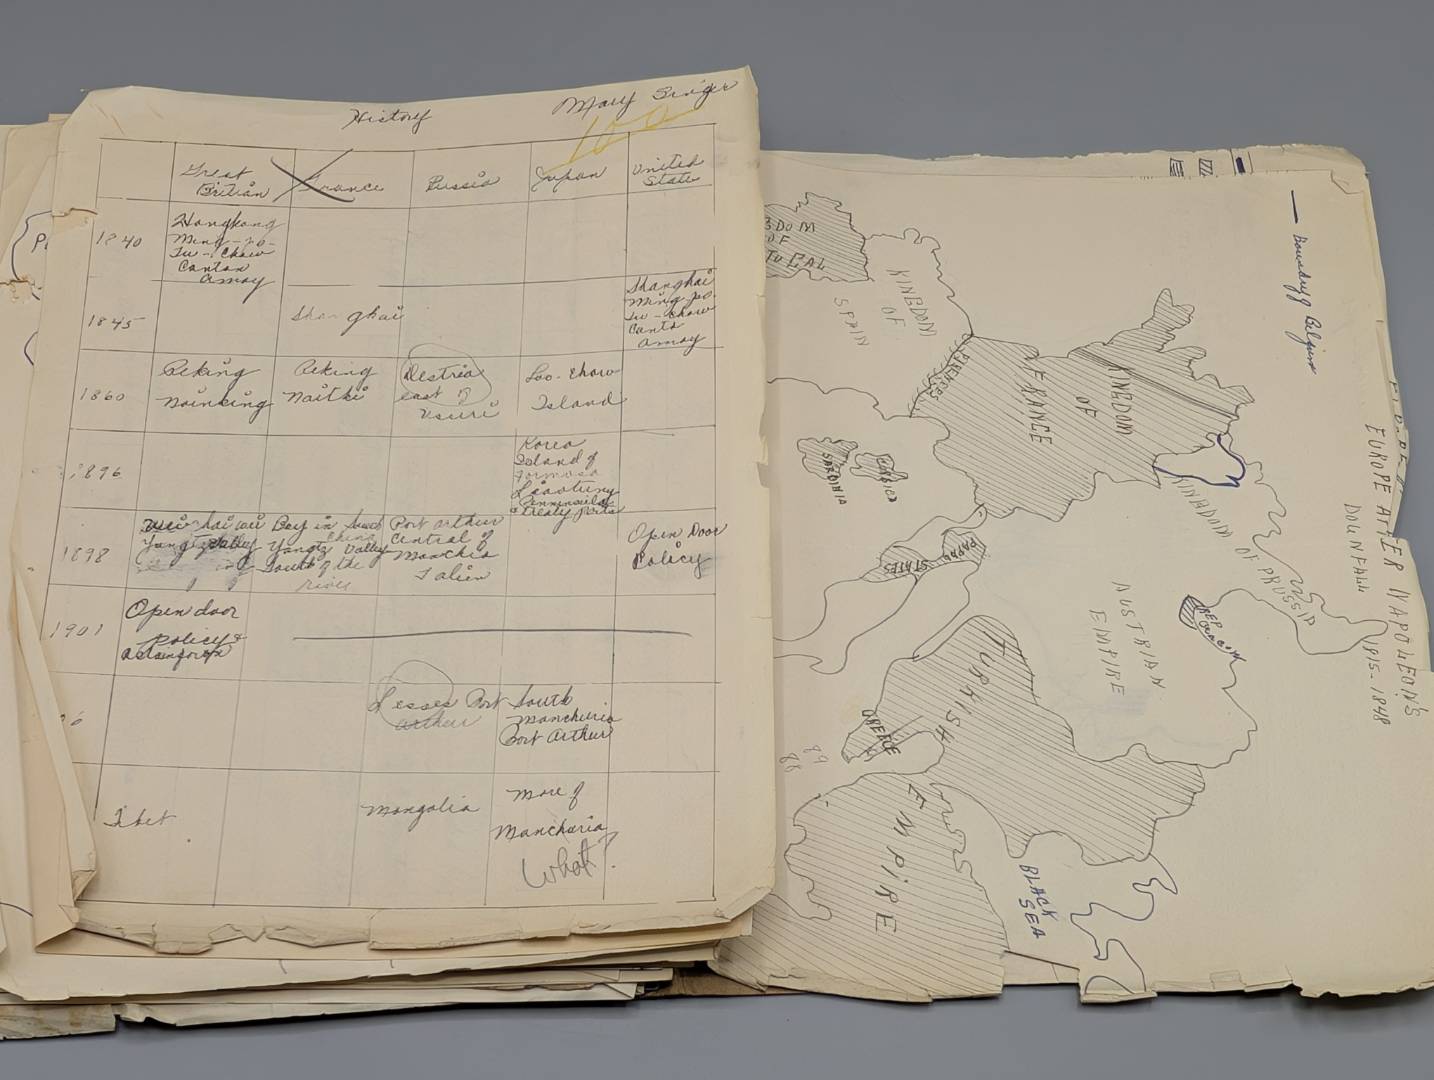 History
Mary Singer
100
Great
Britian
France
Russia
Japan
United
State
1840
Hongkong
Ming-po-
Fu-chow
Canton
Amoy
1845
Shanghai
Shanghai
Ming-po-
Fu-chow
Canto
Amoy
1860
Peking
Nainking
Peking
Naitki
Destria
east of
Usuri
Loo-chow
Island
1896
Korea
Island of
Formosa
Liaotung
Penninsula
& treaty ports
1898
Wei-hai wei
Yangtz Valley
Bay in South
China
Yangtz Valley
South of the
river
Port arthur
Central of
Manchia
Talien
Open Door
Policy
1901
Open door
policy &
6
Lesses Port
arthur
South
Manchuria
Port Arthur
Tibet
Mongolia
More of
Manchuria
What?
P
DOM
OF
TUGAL
KINGDOM
OF
SPAIN
PYRENEES
KINGDOM
OF
FRANCE
SARDINIA
PAPAL
STATES
KINGDOM OF PRUSSIA
AUSTRIAN
EMPIRE
REP
TURKISH
EMPIRE
GREECE
89
88
BLACK
SEA
Boundry Belgium
EUROPE AFTER NAPOLEON'S
DOWNFALL 1815-1848